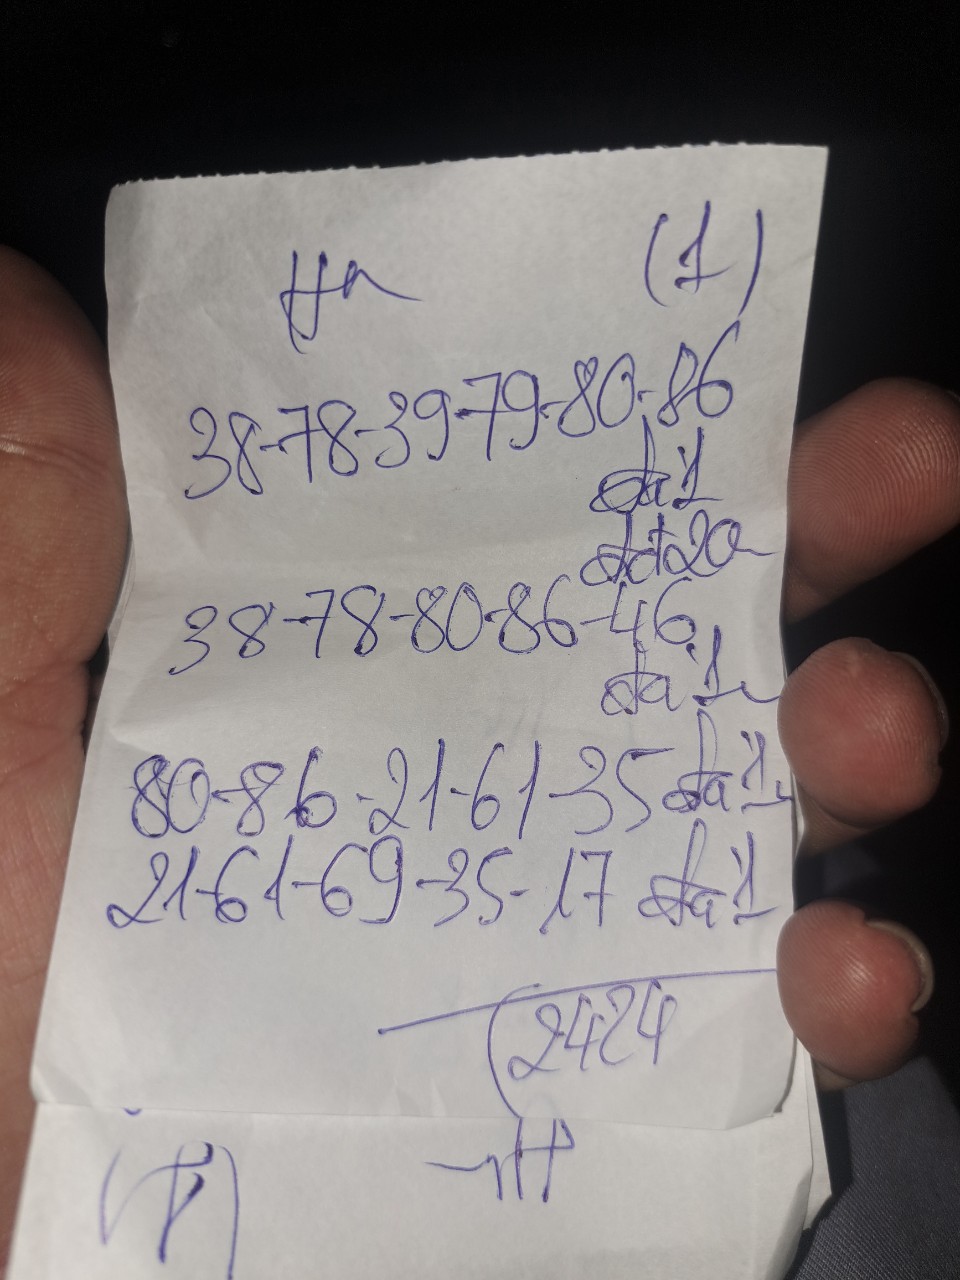 (1)
38-78-39-79-80-86
đá 1
đđ20
38-78-80-86-46
đá 1
80-86-21-61-35 đá 1
21-61-69-35-17 đá 1
2424